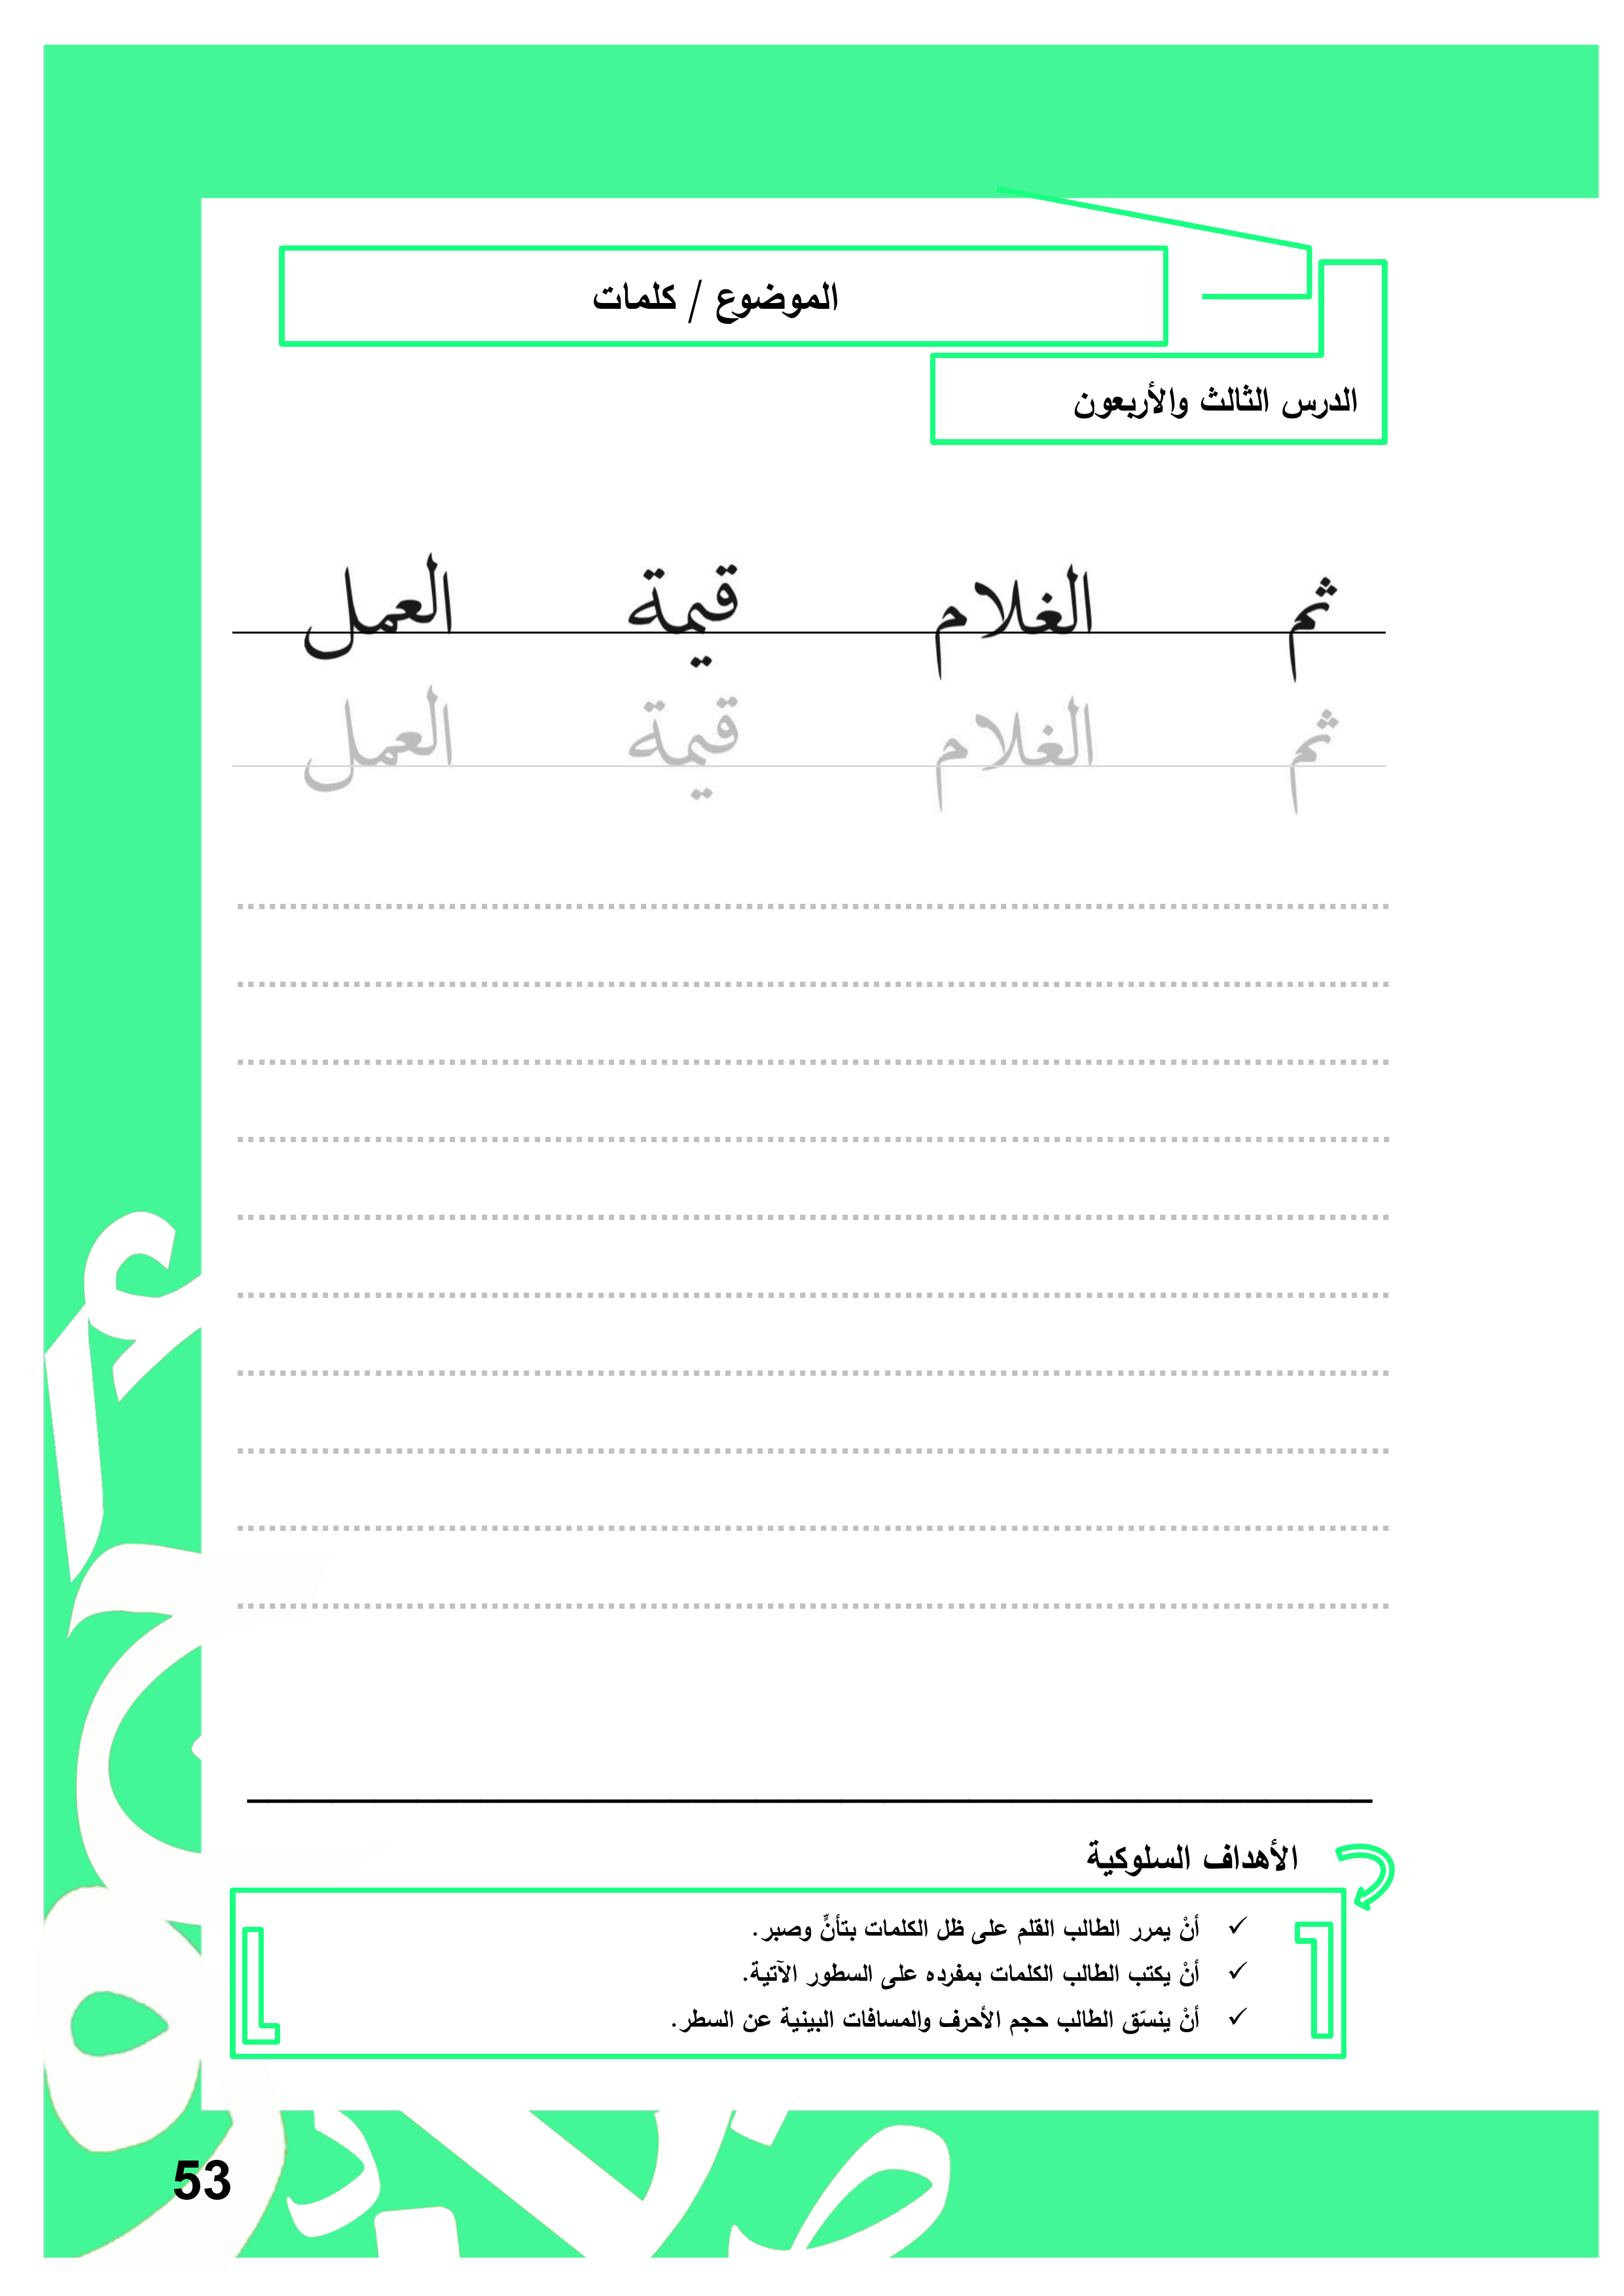 الموضوع / كلمات
الدرس الثالث والأربعون
ثم الغلام قيمة العمل
ثم الغلام قيمة العمل
الأهداف السلوكية
✓ أنْ يمرر الطالب القلم على ظل الكلمات بتأنٍّ وصبر.
✓ أنْ يكتب الطالب الكلمات بمفرده على السطور الآتية.
✓ أنْ ينسّق الطالب حجم الأحرف والمسافات البينية عن السطر.
53